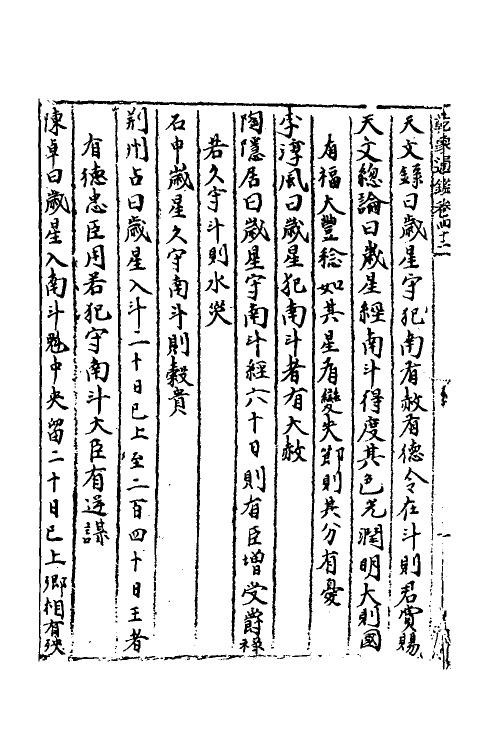 乾象通鑑卷四十二
天文錄曰歲星守犯南有赦有德令在斗則君賞賜
天文總論曰歲星經南斗得度其色光潤明大則國
有福大豐稔如其星有變失節則其分有憂
李淳風曰歲星犯南斗者有大赦
陶隱居曰歲星守南斗經六十日則有臣增受爵祿
若久守斗則水災
石申歲星久守南斗則穀貴
荊州占曰歲星入斗二十日已上至二百四十日王者
有德忠臣用若犯守南斗大臣有逆謀
陳卓曰歲星入南斗魁中央留二十日已上卿相有殃